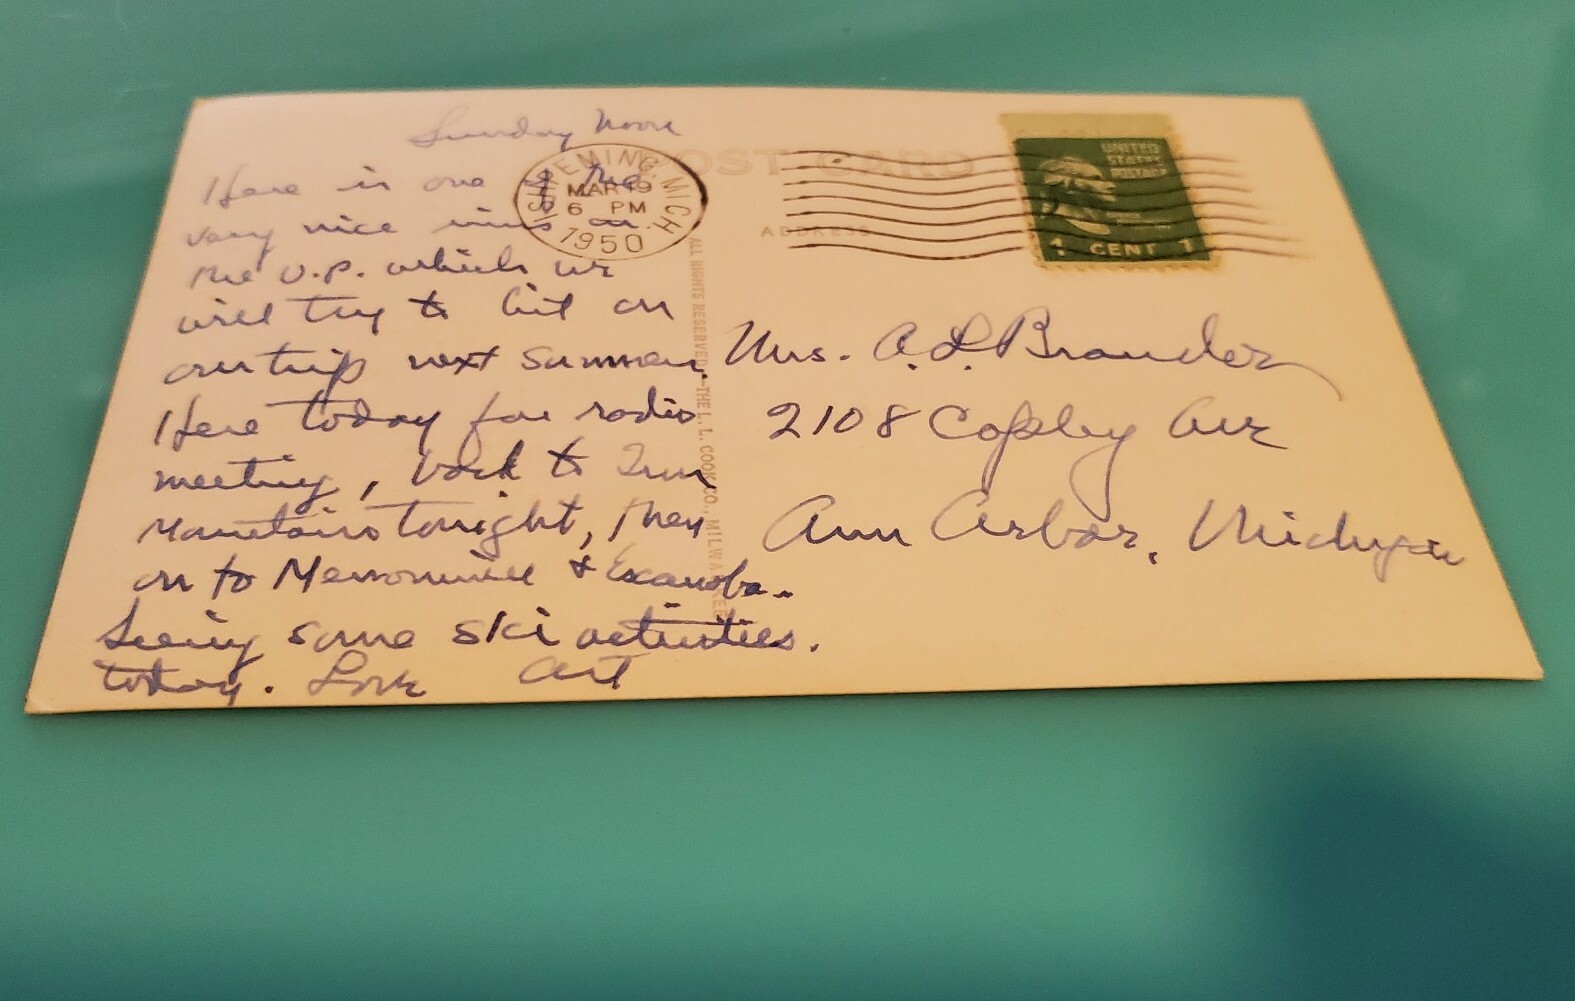 Sunday Noon
Here is one of the
very nice inns on
the U.P. which we
will try to hit on
our trip next summer.
Here today for radio
meeting, back to Iron
Mountain tonight, then
on to Menominee & Escanaba.
Seeing some ski activities.
today. Love Art
ISHPEMING, MICH.
MAR 19
6 PM
1950
POST CARD
ADDRESS
UNITED
STATES
POSTAGE
1 CENT 1
ALL RIGHTS RESERVED—THE L. L. COOK CO., MILWAUKEE
Mrs. A. L. Brandon
2108 Copley Ave
Ann Arbor, Michigan